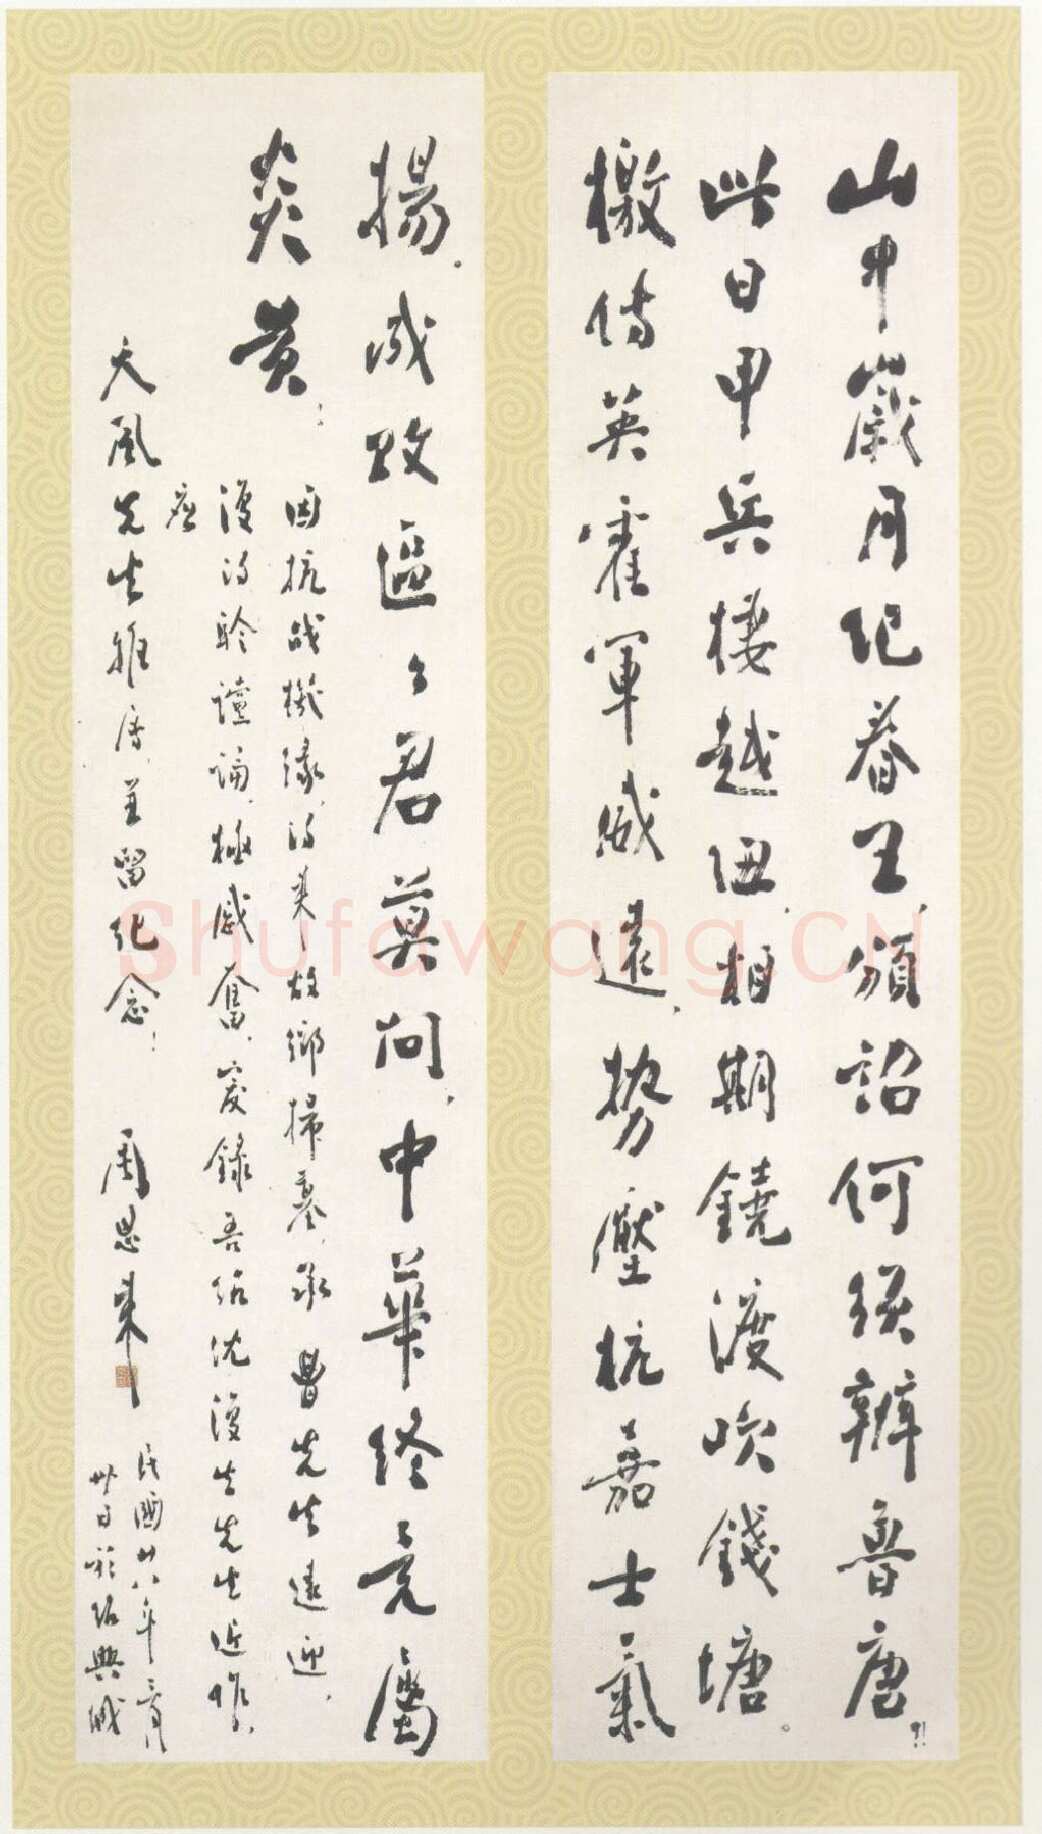 山中歲月紀春王、頒詔何須辨魯唐。
此日甲兵棲越紐、相期鐃渡吹錢塘。
檄傳英霍軍威遠、勢壓杭嘉士氣
揚。成敗區々君莫問、中華終竟屬
炎黃。
因抗战機緣、得来故鄉掃墓、承曹先生遠迎、
復得聆讜論、極感奮、爰錄吾紹沈復生先生近作、
應
天風先生雅屬、并留紀念。
周恩来
民國廿八年三月
卅日於紹興城
Shufawang.CN